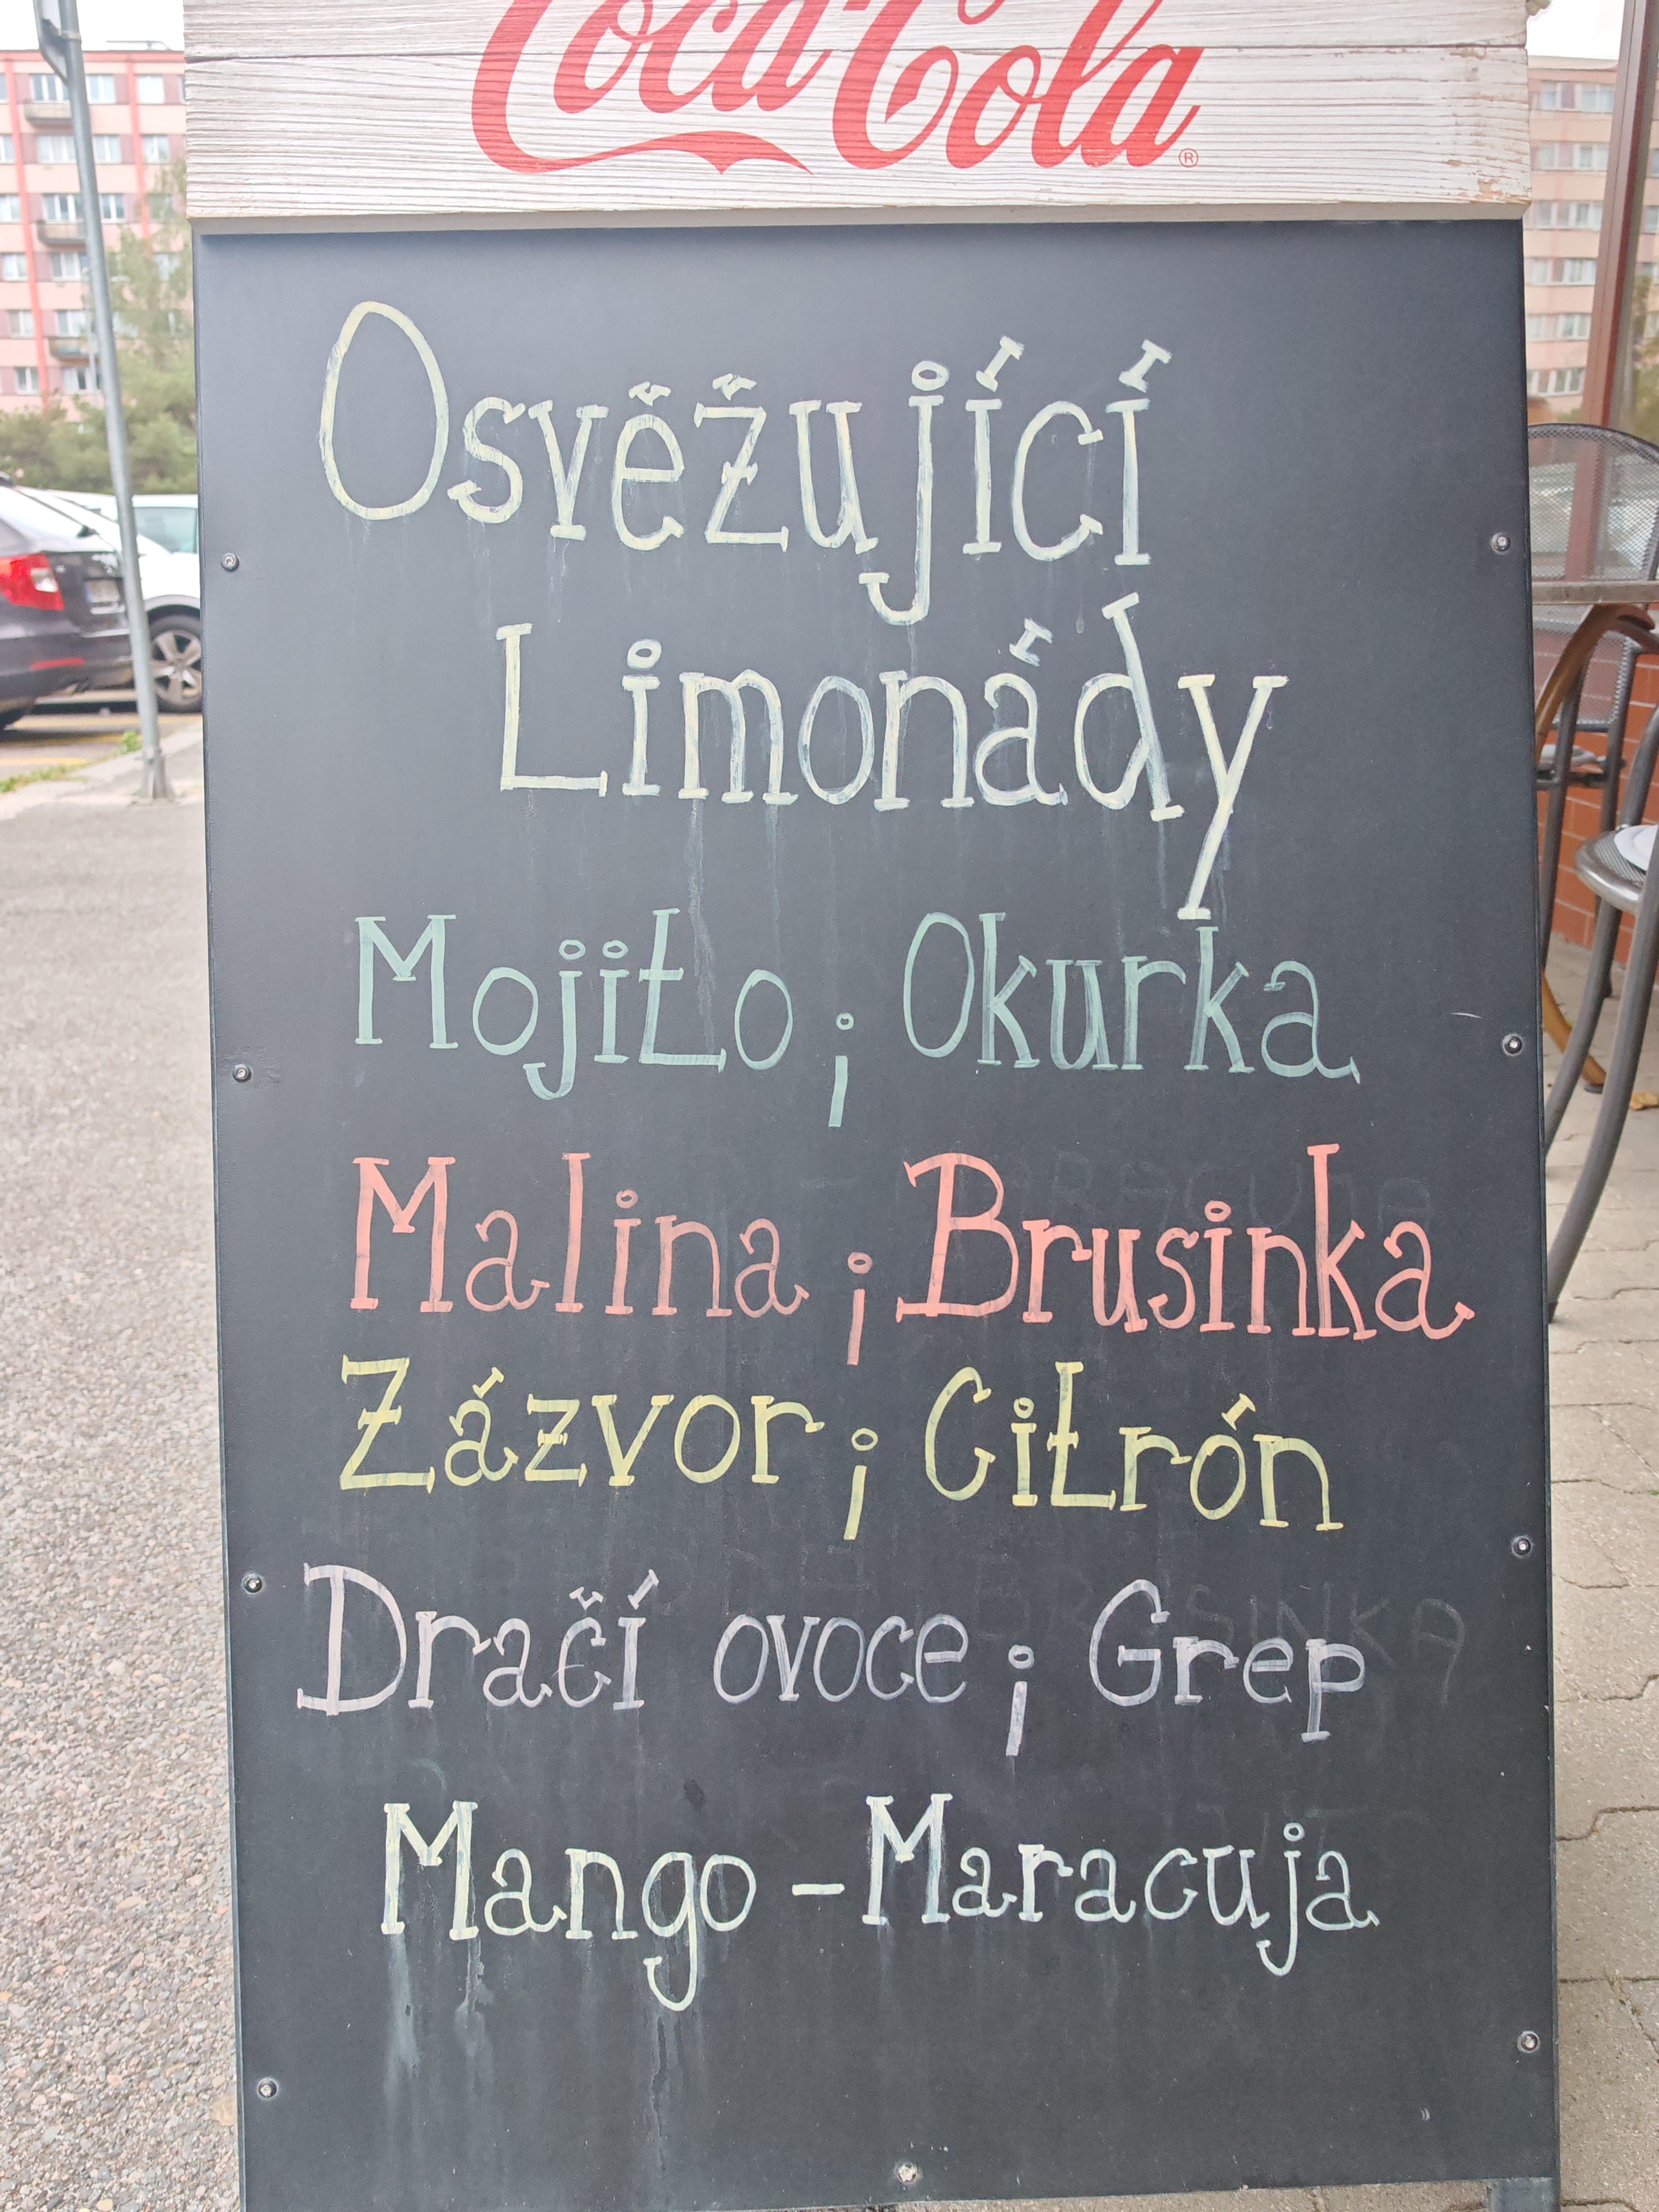 Coca-Cola®
Osvěžující
Limonády
Mojito ; Okurka
Malina ; Brusinka
Zázvor ; Citrón
Dračí ovoce ; Grep
Mango - Maracuja